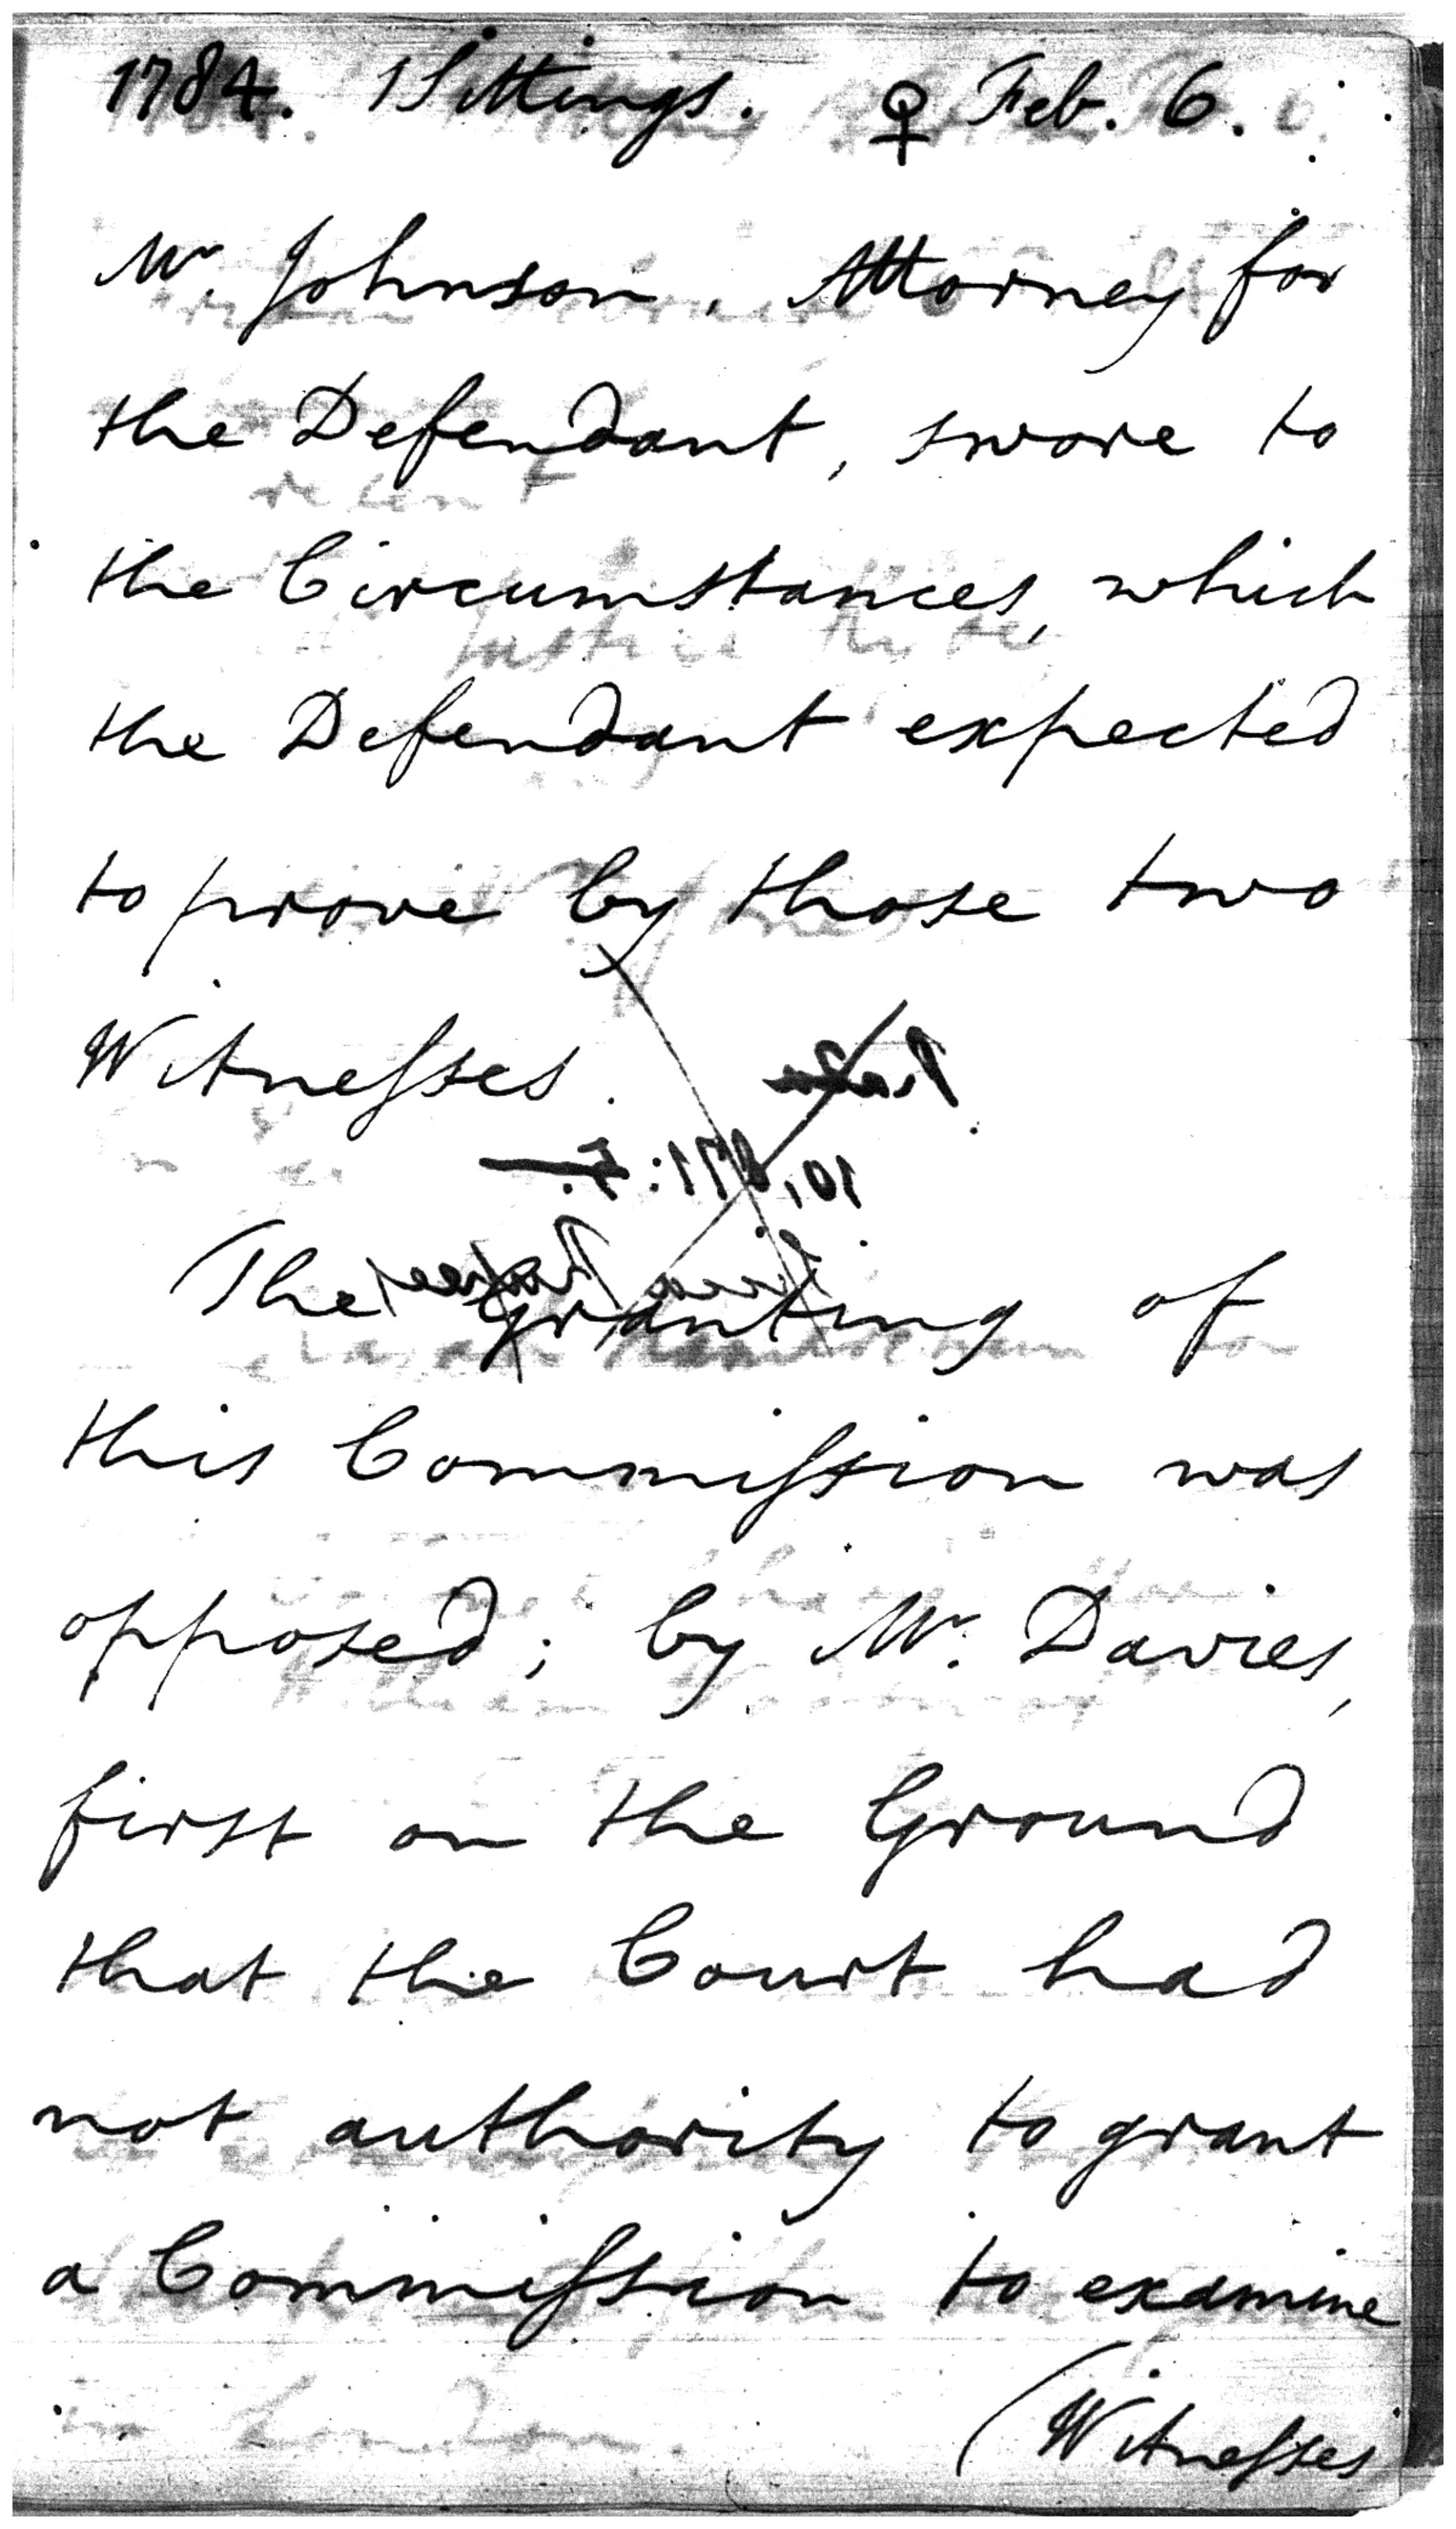 1784. 1 Sittings. ♀ Feb. 6.
Mr. Johnson, Attorney for
the Defendant, swore to
the Circumstances, which
the Defendant expected
to prove by those two
Witnesses.
The granting of
this Commission was
opposed; by Mr. Davies,
first on the Ground
that the Court had
not authority to grant
a Commission to examine
(Witnesses